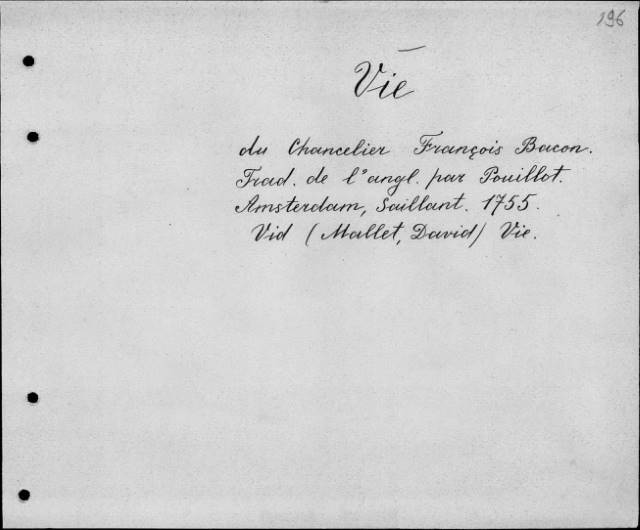 196
Vie
du Chancelier François Bacon.
Trad. de l'angl. par Pouillot.
Amsterdam, Saillant. 1755.
Vid (Mallet, David) Vie.